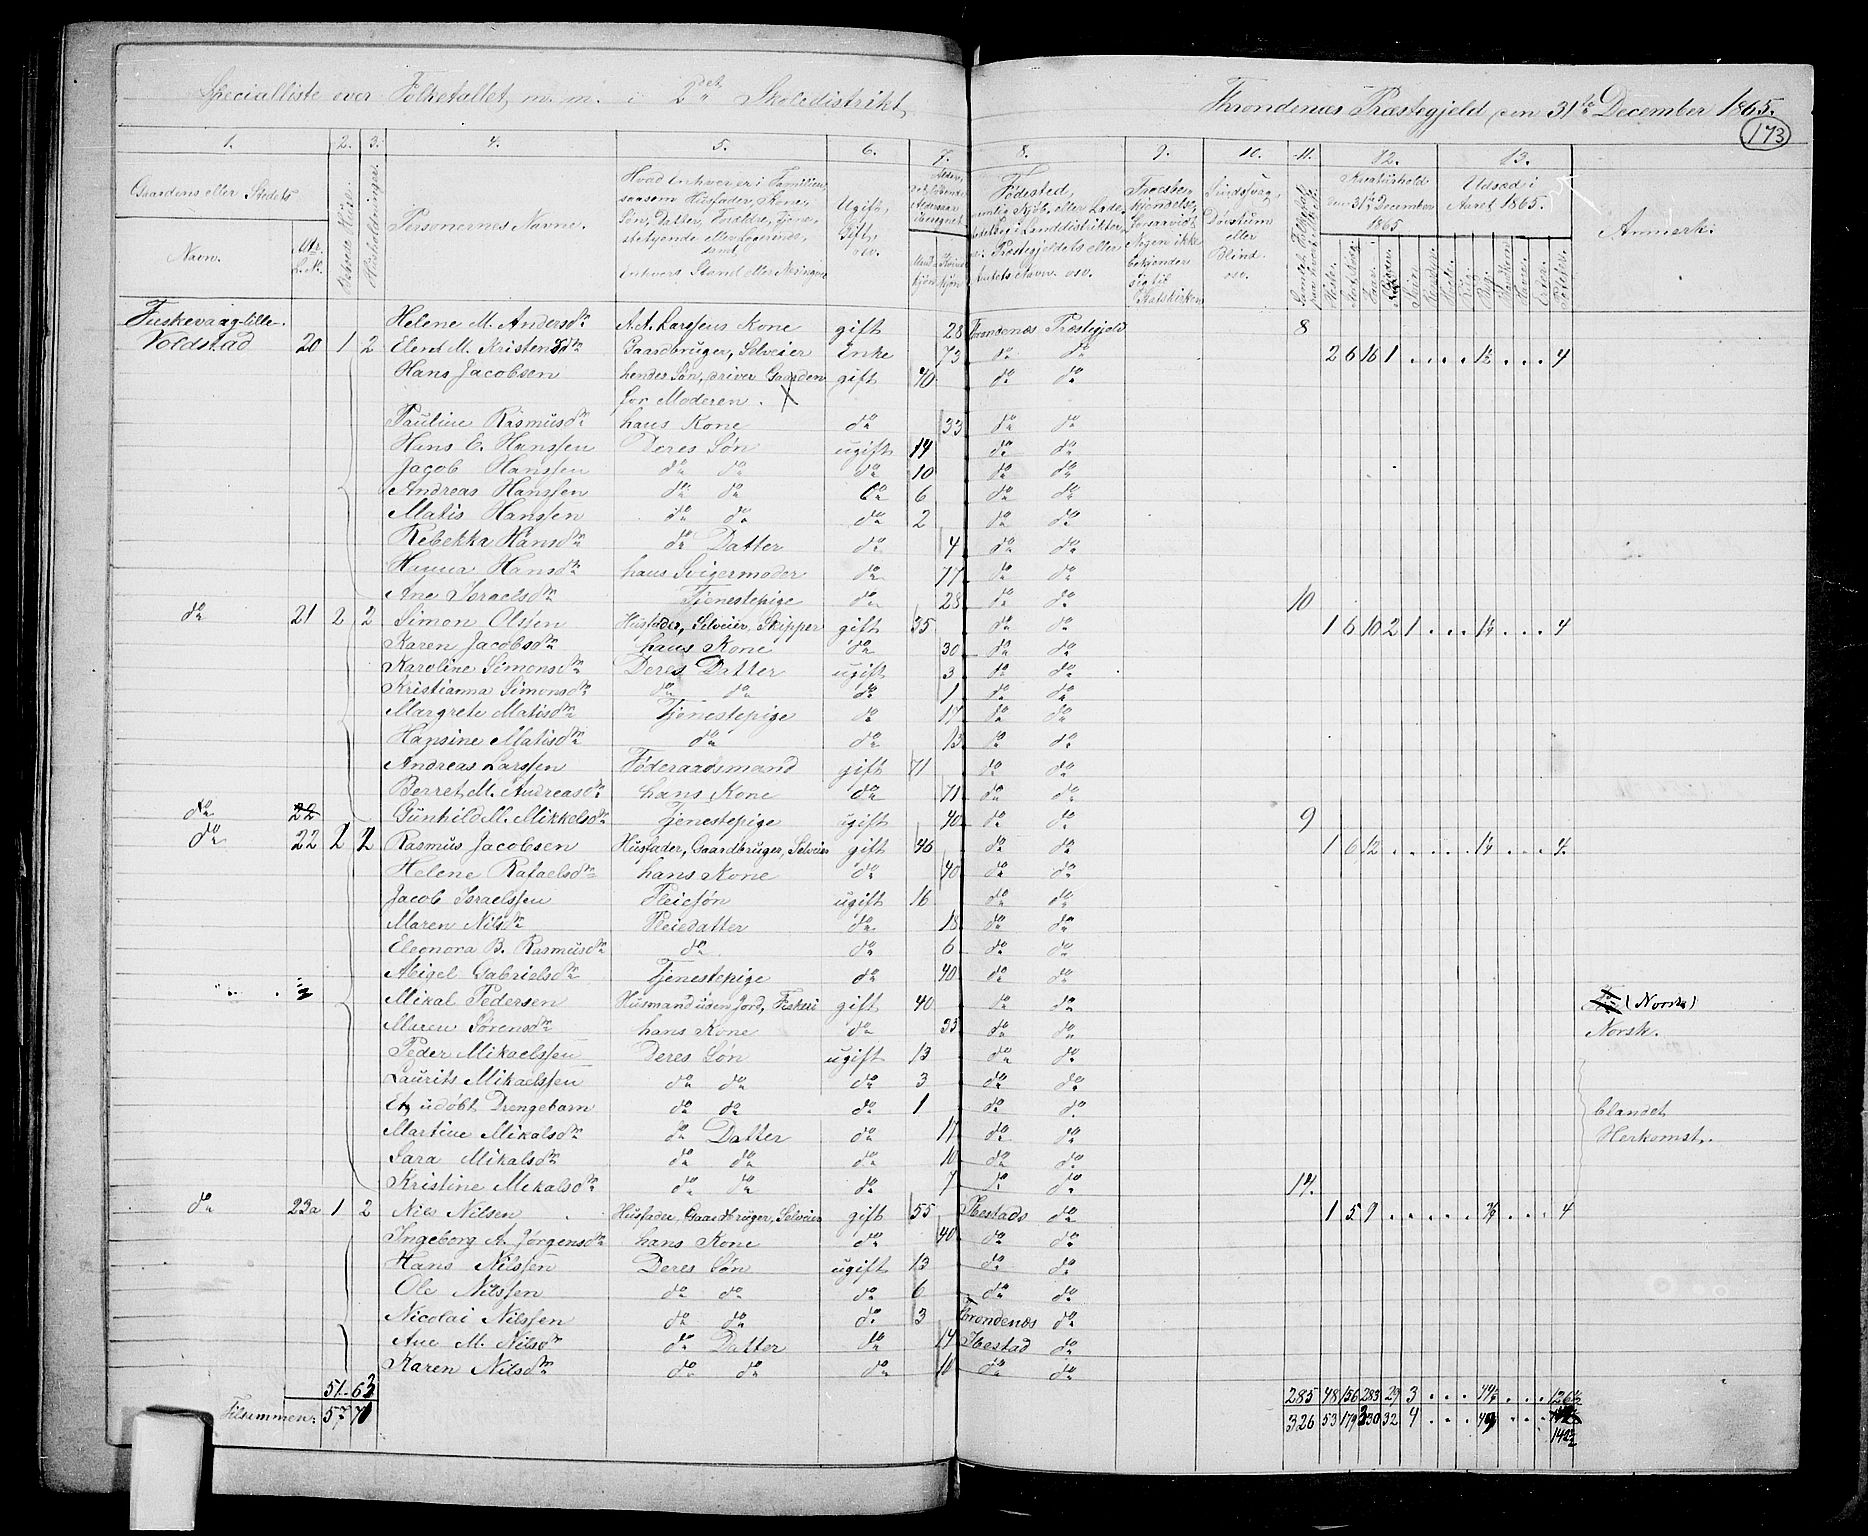 Specialliste over Folketallet m. m. i 2det Skoledistrikt, Throndenæs Præstegjeld den 31te December 1865.
173
1. 2. 3. 4. 5. 6. 7. 8. 9. 10. 11. 12. 13.
Gaardens eller Stedets
Navn.
Personernes Navne.
Hvad Enhver er i Familien,
saasom Husfader, Kone,
Søn, Datter, Forældre, Tjene-
stetyende eller Logerende,
samt
Enhvers Stand eller Næringsvei
Ugift,
Gift,
osv.
Fødested,
Præstegjeldets eller
Sindssvag,
Døvstum
eller
Blind
osv.
Kreaturhold
den 31te December
1865
Udsæd i
Aaret 1865.
Anmerk:
Fuskevaag-lille. Helene M. Andersdn A. A. Larsens Kone gift 28 Trondenæs Præstegjeld 8
Voldstad 20 1 2 Elen M. Kristensdn Gaardbruger, Selveier Enke 73 do do 2 6 16 1 . . . . 1½ . . . 4
Hans Jacobsen hendes Søn, driver Gaarden gift 40 do do
for Moderen.
Pauline Rasmusdn hans Kone do 33 do do
Hans E. Hanssen Deres Søn ugift 14 do do
Jacob Hanssen do do do 10 do do
Andreas Hanssen do do do 6 do do
Matis Hanssen do do do 2 do do
Rebekka Hansdn do Datter do 4 do do
Hansdn hans Svigermoder do 77 do do
Ane Israelsdn Tjenestepige do 28 do do 10
do 21 2 2 Simon Olsen Husfader, Selveier, Skipper gift 35 do do 1 6 10 2 1 . . . 1¼ . . . 4
Karen Jacobsdn hans Kone do 30 do do
Karoline Simonsdn Deres Datter ugift 3 do do
Kristianna Simonsdn do do do 1 do do
Margrete Matisdn Tjenestepige do 17 do do
Hansine Matisdn do do 13 do do
Andreas Larssen Føderaadsmand gift 71 do do
Berret M. Andreasdn hans Kone do 71 do do
do 22 Gunhild M. Mikkelsdn Tjenestepige ugift 40 do do 9
do 22 2 2 Rasmus Jacobsen Husfader, Gaardbruger, Selveier gift 46 do do 1 6 12 . . . . . 1¼ . . . 4
Helene Rafaelsdn hans Kone do 40 do do
Jacob Israelssen Pleiesøn ugift 16 do do
Maren Nilsdn Pleiedatter do 18 do do
Eleonora B. Rasmusdn do do 6 do do
Abigel Gabrielsdn Tjenestepige do 40 do do
Mikal Pedersen Husmand uden Jord, Fiskeri gift 40 do do (Norsk)
Maren Sørensdn hans Kone do 35 do do Norsk.
Peder Mikaelssen Deres Søn ugift 13 do do
Laurits Mikaelssen do do do 3 do do
Et udøbt Drengebarn do do do 1 do do blandet
Martine Mikalsdn do Datter do 17 do do Herkomst.
Sara Mikalsdn do do do 10 do do
Kristine Mikalsdn do do do 7 do do 14.
do 23a 1 2 Nils Nilsen Husfader, Gaardbruger, Selveier gift 55 Ibestads do 1 5 9 . . . . . ¾ . . . 4
Ingeborg A. Jørgensdn hans Kone do 40 do do
Hans Nilssen Deres Søn ugift 13 do do
Ole Nilssen do do do 6 do do
Nicolai Nilssen do do do 3 Trondenæs do
Ane M. Nilsdn do Datter do 14 Ibestad do
Karen Nilsdn do do do 10 do do
51 63 285 48 156 283 29 3 . . . 44½ . . . 126½
Tilsammen: 57 71 326 53 179 330 32 4 . . . 49 . . .
142½